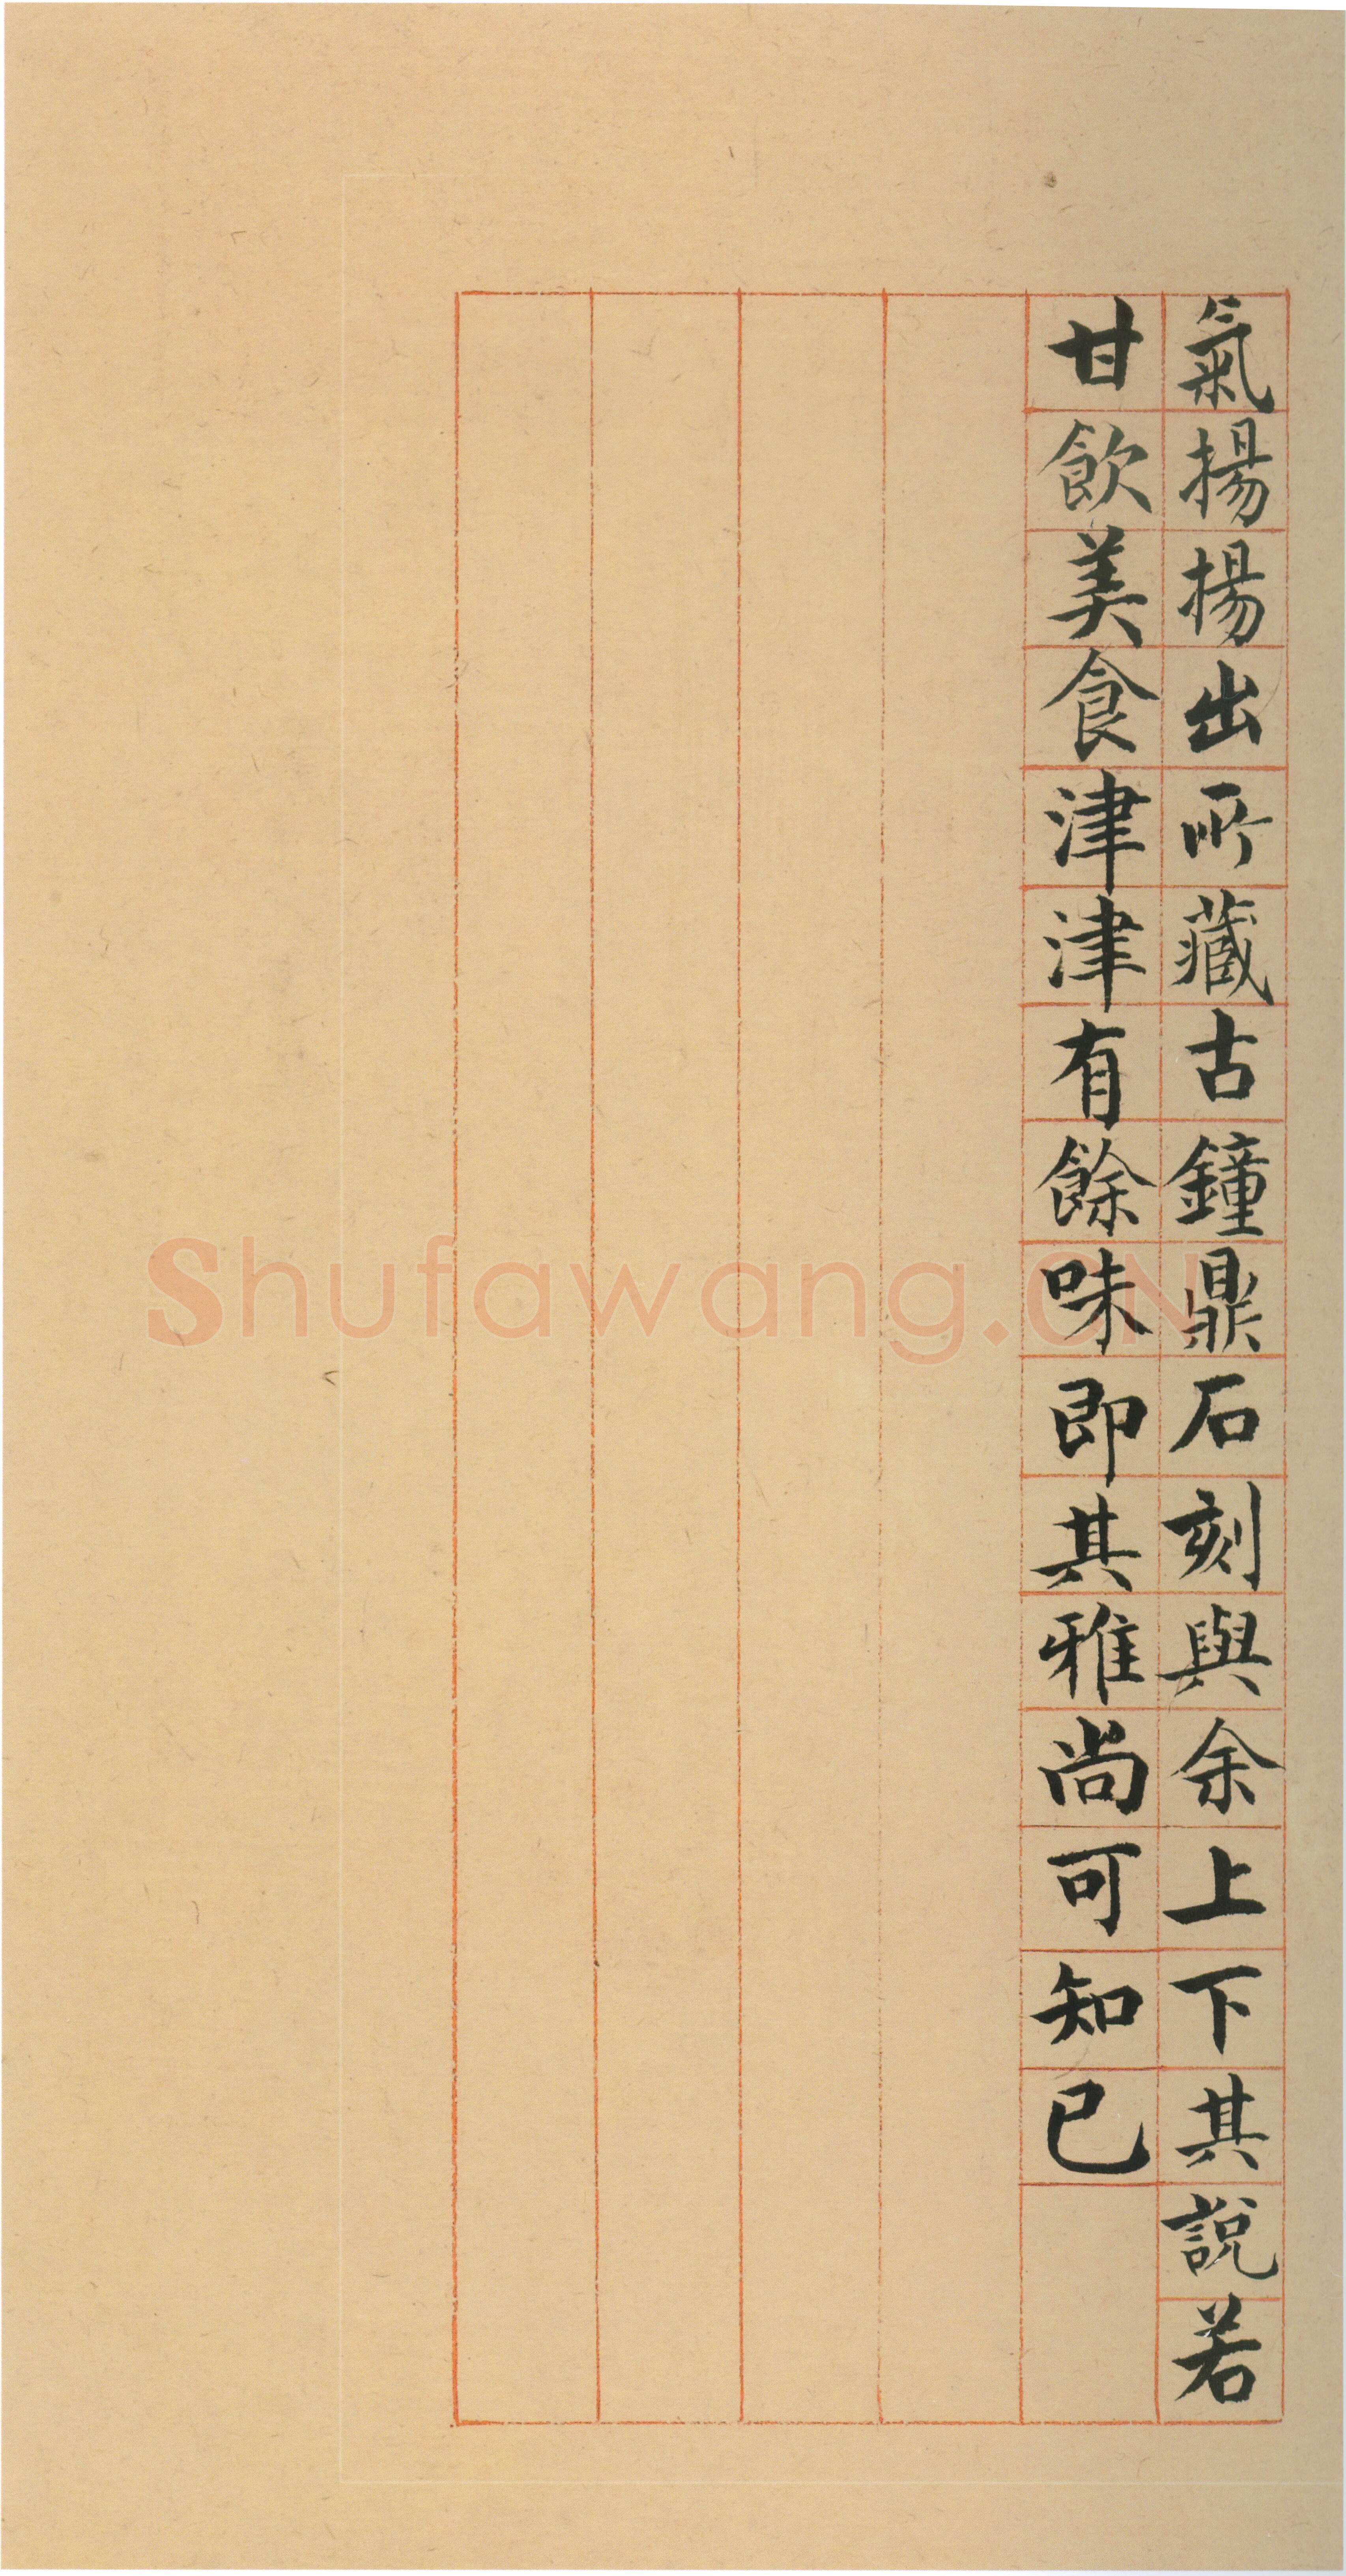 氣揚揚出所藏古鐘鼎石刻與余上下其說若
甘飲美食津津有餘味即其雅尚可知已
Shufawang.CN